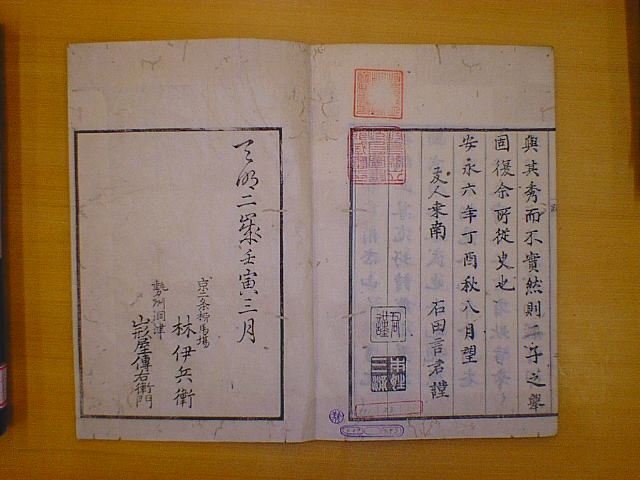 與其秀而不實然則二子之舉
固復余所從臾也
安永六年丁酉秋八月望
友人東南 石田言君謹
天明二歲壬寅三月
京二条柳馬場
林伊兵衛
勢州洞津
山形屋傳右衛門